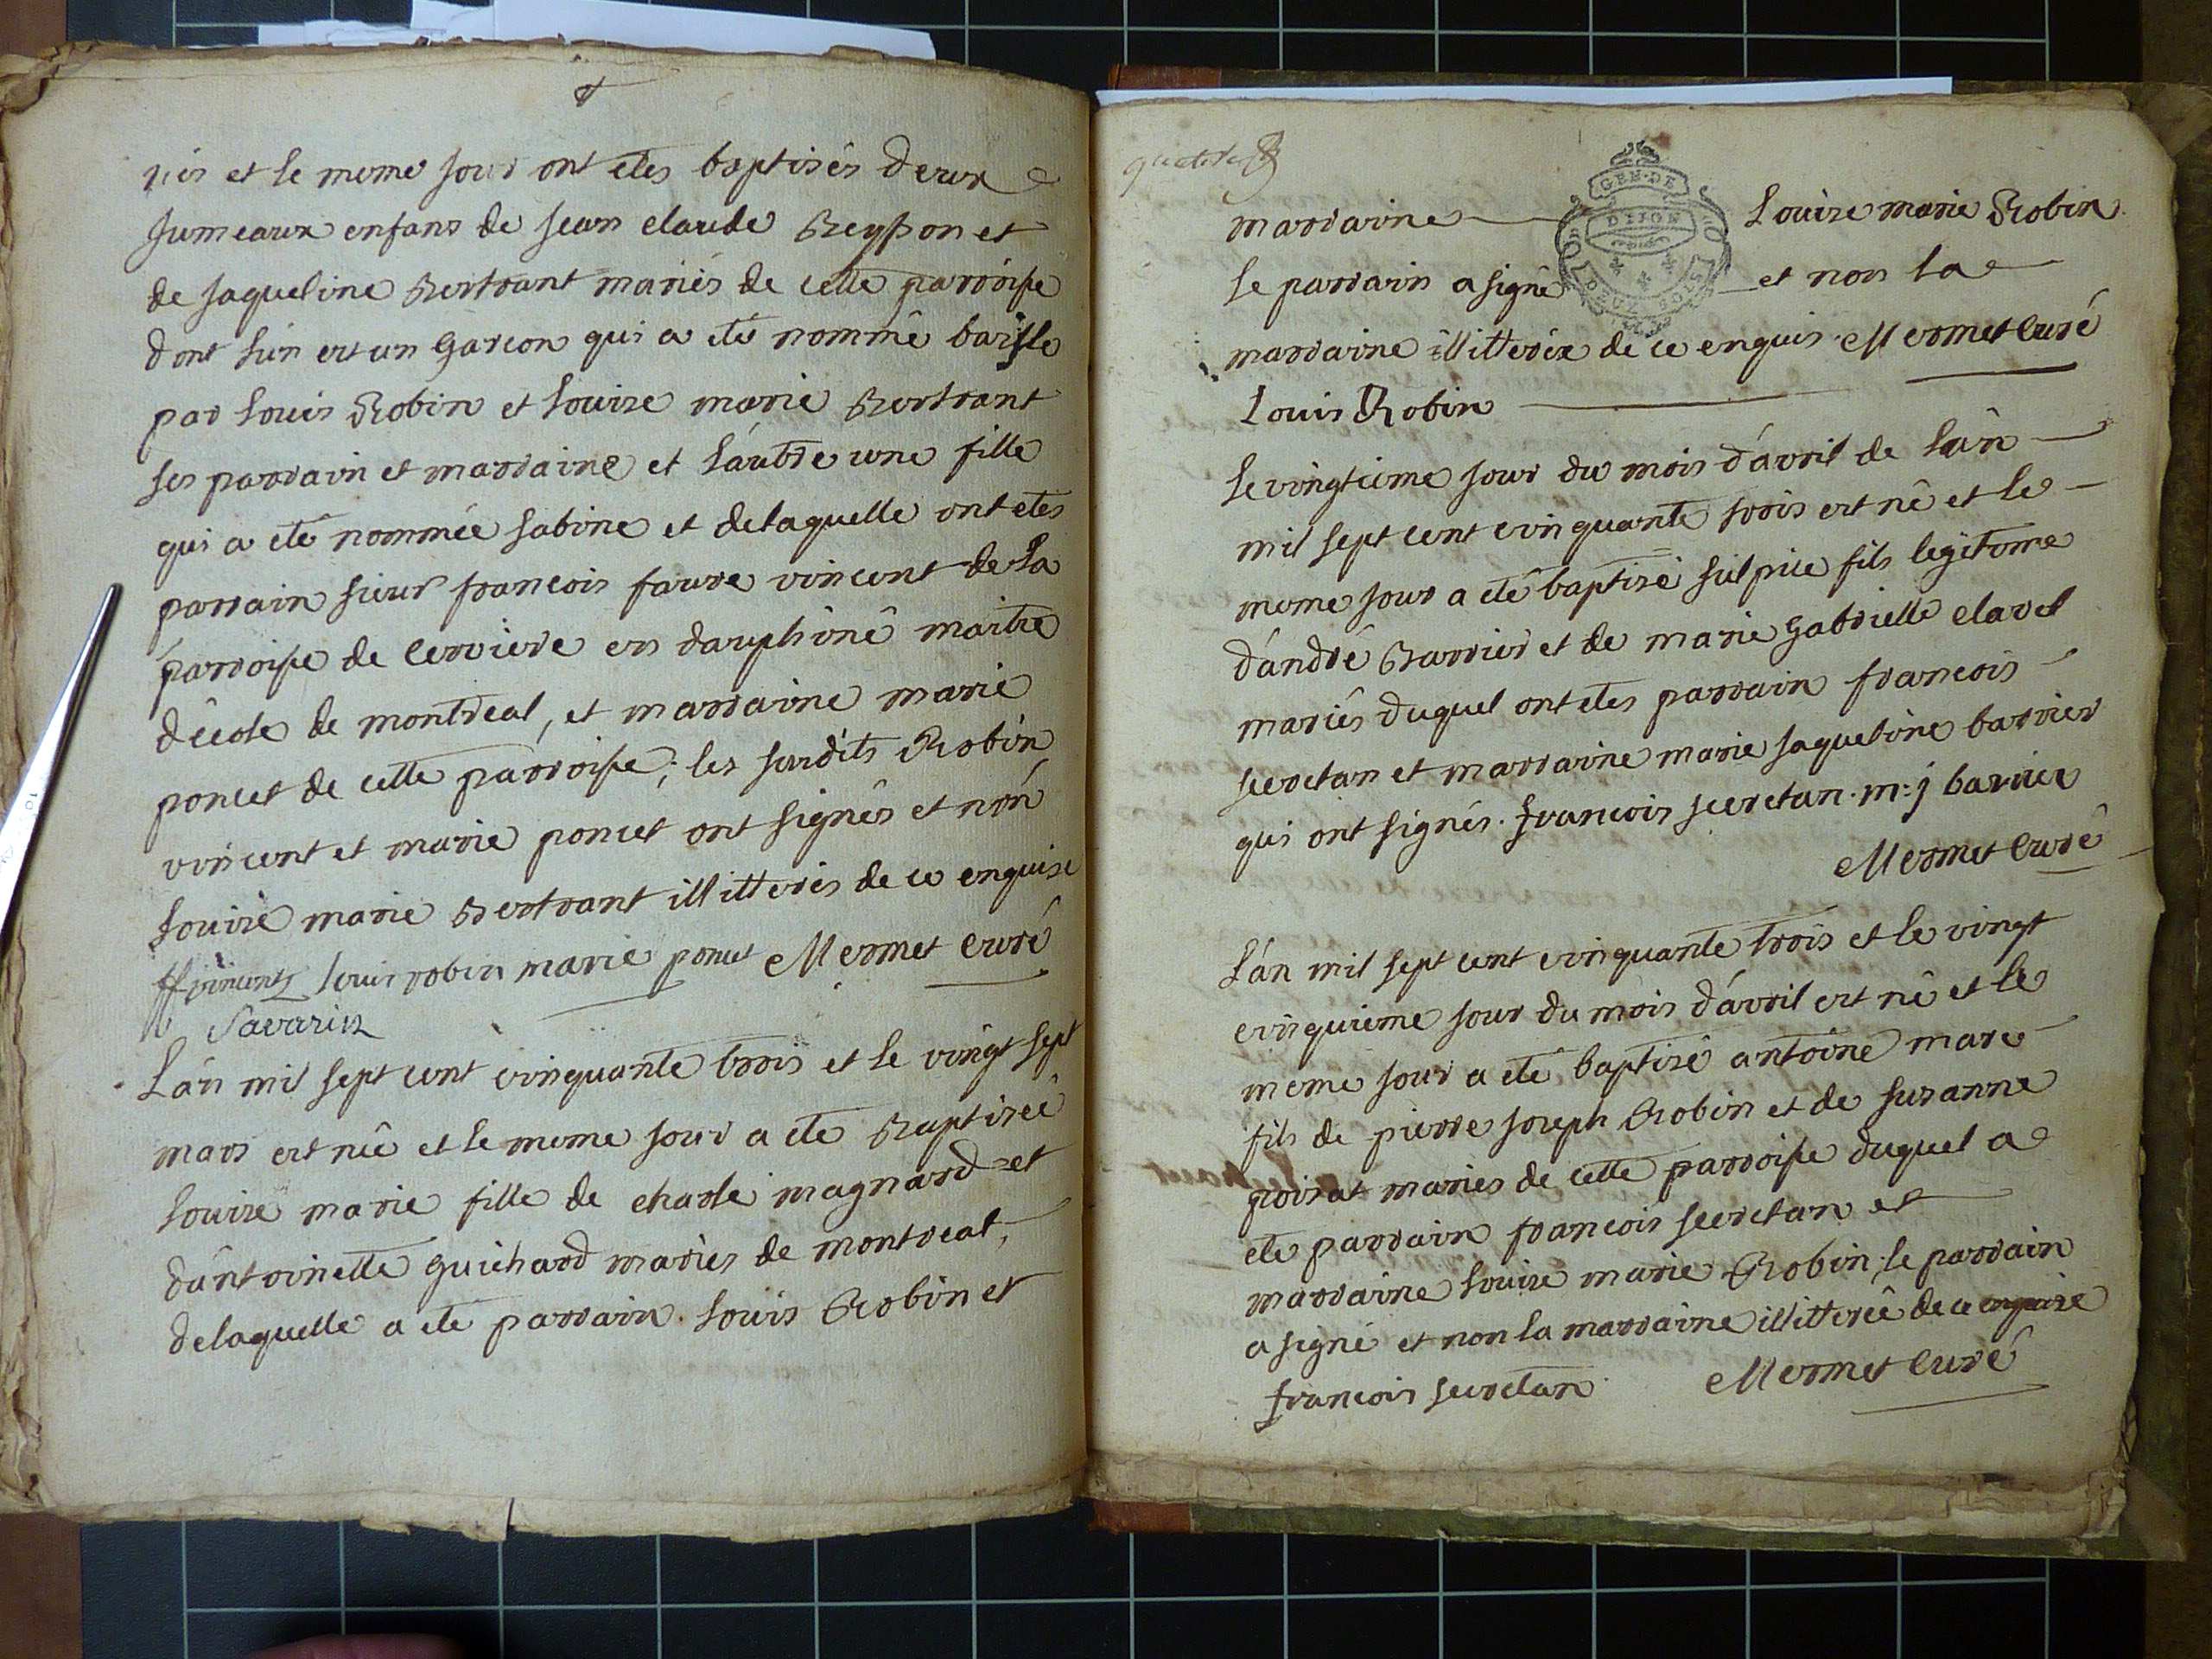 nés et le meme jour ont etes baptisés deux
jumeaux enfans de jean claude Reysson et
de jaqueline Bertrant mariés de cette parroisse
dont l'un est un garcon qui a eté nommé basile
par louis Robin et louise marie Bertrant
ses parrain et marraine et l'autre une fille
qui a eté nommée sabine et de laquelle ont etes
parrain sieur francois faure vincent de La
parroisse de Cerviere en dauphiné maitre
d'ecole de montreal, et marraine marie
poncet de cette parroisse; les susdits Robin
vincent et marie poncet ont signés et non
louise marie Bertrant illitterés de ce enquise
ffvincent louis robin marie poncet Mermet Curé
Savarin
L'an mil sept cent cinquante trois et le vingt sept
mars est née et le meme jour a eté Baptisée
louise marie fille de charle magnard et
d'antoinette guichard mariés de montreal,
de laquelle a eté parrain louis Robin et
marraine Louise marie Robin
GEN·DE
DIJON
DEUX SOLS
le parrain a signé et non la
marraine illitterée de ce enquis Mermet Curé
Louis Robin
le vingtieme jour du mois d'avril de l'an
mil sept cent cinquante trois est né et le
meme jour a eté baptisé sulpice fils legitime
d'andré Barrier et de marie gabrielle claret
mariés duquel ont etes parrain francois
secretan et marraine marie jaqueline barrier
qui ont signés. francois secretan. m: j barrier
Mermet Curé
L'an mil sept cent cinquante trois et le vingt
cinquieme jour du mois d'avril est né et le
meme jour a eté baptisé antoine marc
fils de pierre joseph Robin et de suzanne
poisat mariés de cette parroisse duquel a
eté parrain francois secretan et
marraine louise marie Robin; le parrain
a signé et non la marraine illitterée de ce enquise
francois secretan Mermet Curé